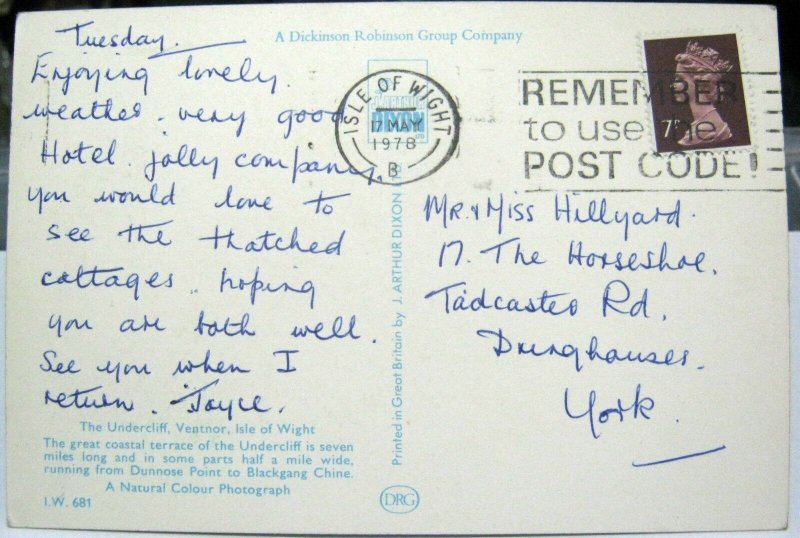 Tuesday.
Enjoying lovely
weather. very good
Hotel. jolly company.
you would love to
see the thatched
cottages. hoping
you are both well.
See you when I
return. Joyce.
The Undercliff, Ventnor, Isle of Wight
The great coastal terrace of the Undercliff is seven
miles long and in some parts half a mile wide,
running from Dunnose Point to Blackgang Chine.
A Natural Colour Photograph
I.W. 681
A Dickinson Robinson Group Company
Printed in Great Britain by J. ARTHUR DIXON
DRG
ISLE OF WIGHT
17 MAY
1978
B
REMEMBER
to use the
POST CODE!
7
Mr. & Miss Hillyard.
17. The Horseshoe.
Tadcaster Rd.
Dringhouses.
York.